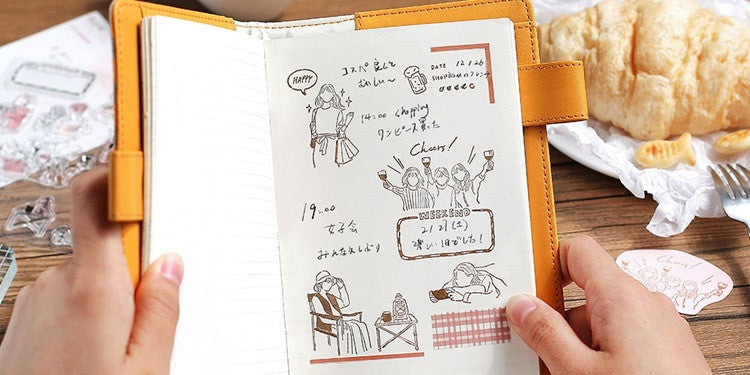 HAPPY
コスパ 良くて
おいしい〜
DATE 12/26
14:00 shopping
ワンピース買った
Cheers!
19:00
女子会
みんな久しぶり
WEEKEND
2/21(土)
寒い1日でした!
Cheers!